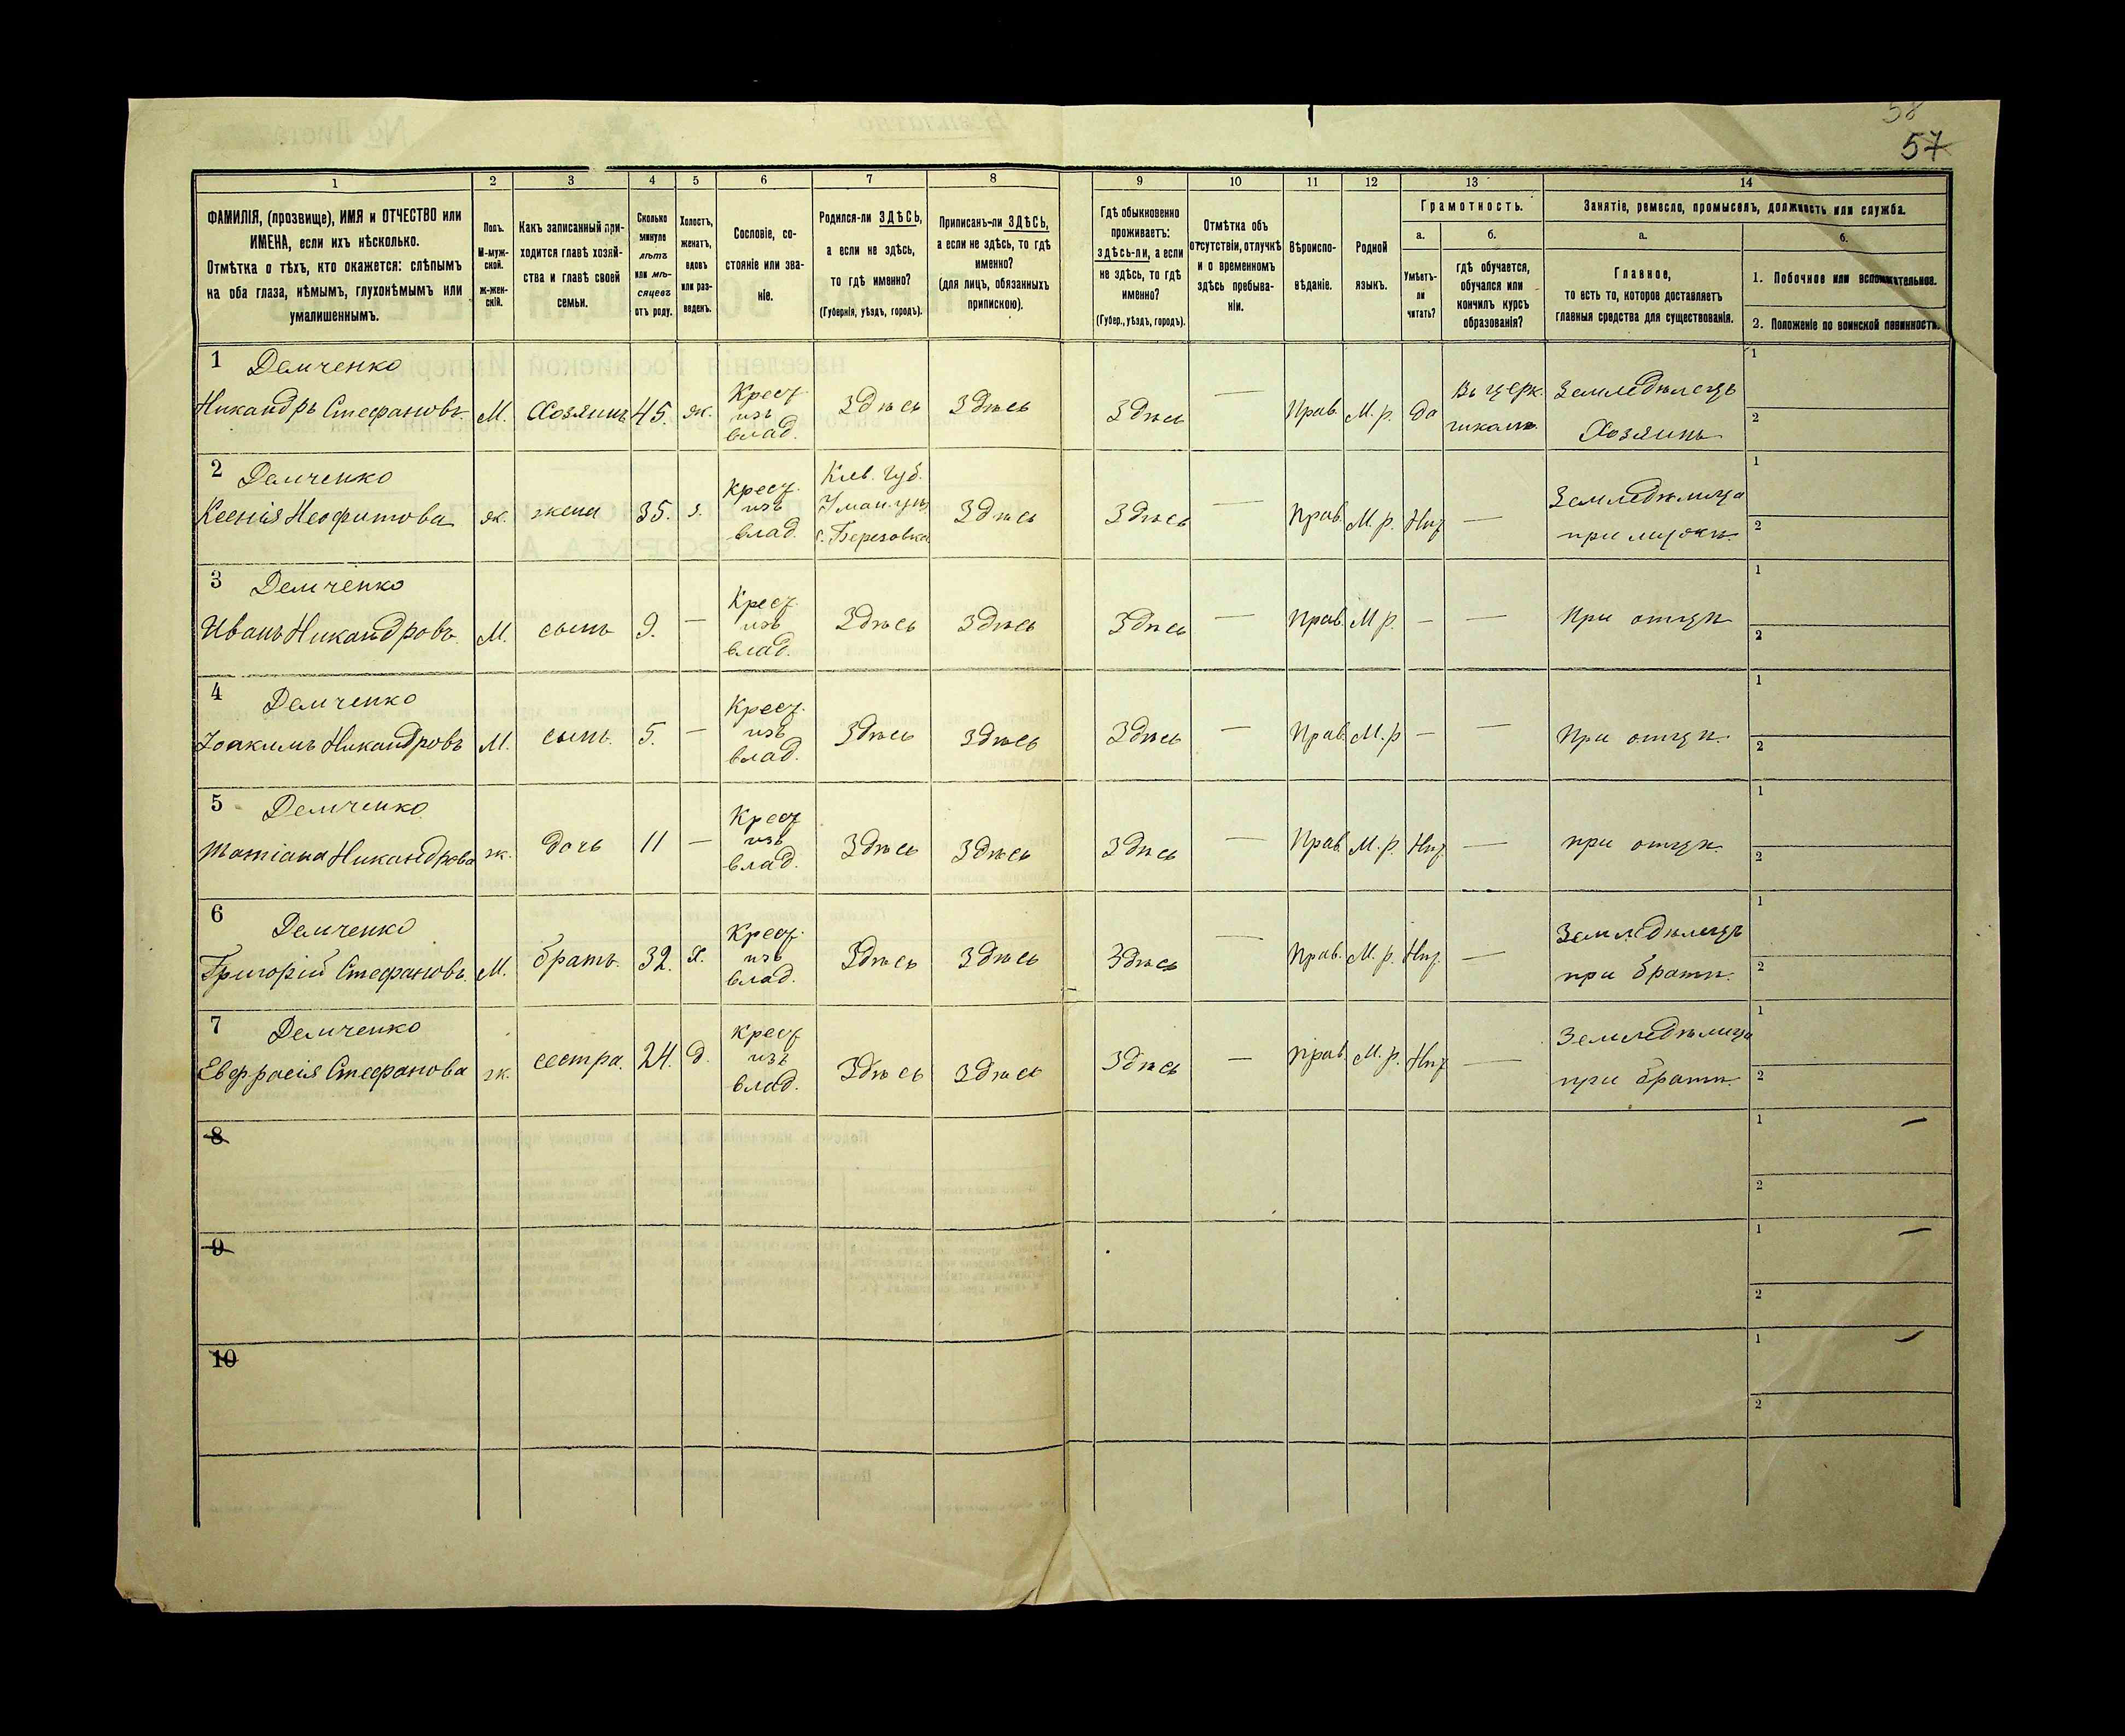 58
57
1 2 3 4 5 6 7 8 9 10 11 12 13 14
ФАМИЛІЯ, (прозвище), ИМЯ и ОТЧЕСТВО или
ИМЕНА, если ихъ нѣсколько.
Отмѣтка о тѣхъ, кто окажется: слѣпымъ
на оба глаза, нѣмымъ, глухонѣмымъ или
умалишеннымъ.
Полъ.
М-муж-
ской.
Ж-жен-
скій.
Какъ записанный при-
ходится главѣ хозяй-
ства и главѣ своей
семьи.
Сколько
минуло
лѣтъ
или мѣ-
сяцевъ
отъ роду.
Холостъ,
женатъ,
вдовъ
или раз-
веденъ.
Сословіе, со-
стояніе или зва-
ніе.
Родился-ли ЗДѢСЬ,
а если не здѣсь,
то гдѣ именно?
(Губернія, уѣздъ, городъ).
Приписанъ-ли ЗДѢСЬ,
а если не здѣсь, то гдѣ
именно?
(для лицъ, обязанныхъ
припискою).
Гдѣ обыкновенно
проживаетъ:
здѣсь-ли, а если
не здѣсь, то гдѣ
именно?
(Губер., уѣздъ, городъ).
Отмѣтка объ
отсутствіи, отлучкѣ
и о временномъ
здѣсь пребыва-
ніи.
Вѣроиспо-
вѣданіе.
Родной
языкъ.
Грамотность.
а.
Умѣетъ-
ли
читать?
б.
гдѣ обучается,
обучался или
кончилъ курсъ
образованія?
Занятіе, ремесло, промыселъ, должность или служба.
а.
Главное,
то есть то, которое доставляетъ
главныя средства для существованія.
б.
1. Побочное или вспомогательное.
2. Положеніе по воинской повинности.
1 Демченко
Никандръ Стефановъ М. Хозяинъ 45. ж. Крест. изъ влад. Здѣсь Здѣсь Здѣсь — Прав. М. р. да Въ церк. школѣ Земледѣлецъ Хозяинъ 1 2
2 Демченко
Ксенія Неофитова ж. жена 35. з. Крест. изъ влад. Кіев. Губ. Уман. уѣз. с. Березовка Здѣсь Здѣсь — Прав. М. р. Нѣт — Земледѣлица при мужѣ 1 2
3 Демченко
Иванъ Никандровъ М. сынъ 9. — Крест. изъ влад. Здѣсь Здѣсь Здѣсь — Прав. М р. — — При отцѣ 1 2
4 Демченко
Іоакимъ Никандровъ М. сынъ. 5. — Крест. изъ влад. Здѣсь Здѣсь Здѣсь — Прав. М. р — — При отцѣ. 1 2
5 Демченко
Татіана Никандрова ж. дочь 11 — Крест изъ влад. Здѣсь Здѣсь Здѣсь — Прав. М. р. Нѣт. — при отцѣ. 1 2
6 Демченко
Григорій Стефановъ. М. братъ. 32. х. Крест. изъ влад. Здѣсь Здѣсь Здѣсь — Прав. М. р. Нѣт. — Земледѣлецъ при братѣ. 1 2
7 Демченко
Евфрасія Стефанова ж. сестра. 24. д. Крест изъ влад. Здѣсь Здѣсь Здѣсь — Прав. М. р. Нѣт — Земледѣлица при братѣ. 1 2
8 1 — 2
9 1 — 2
10 1 — 2